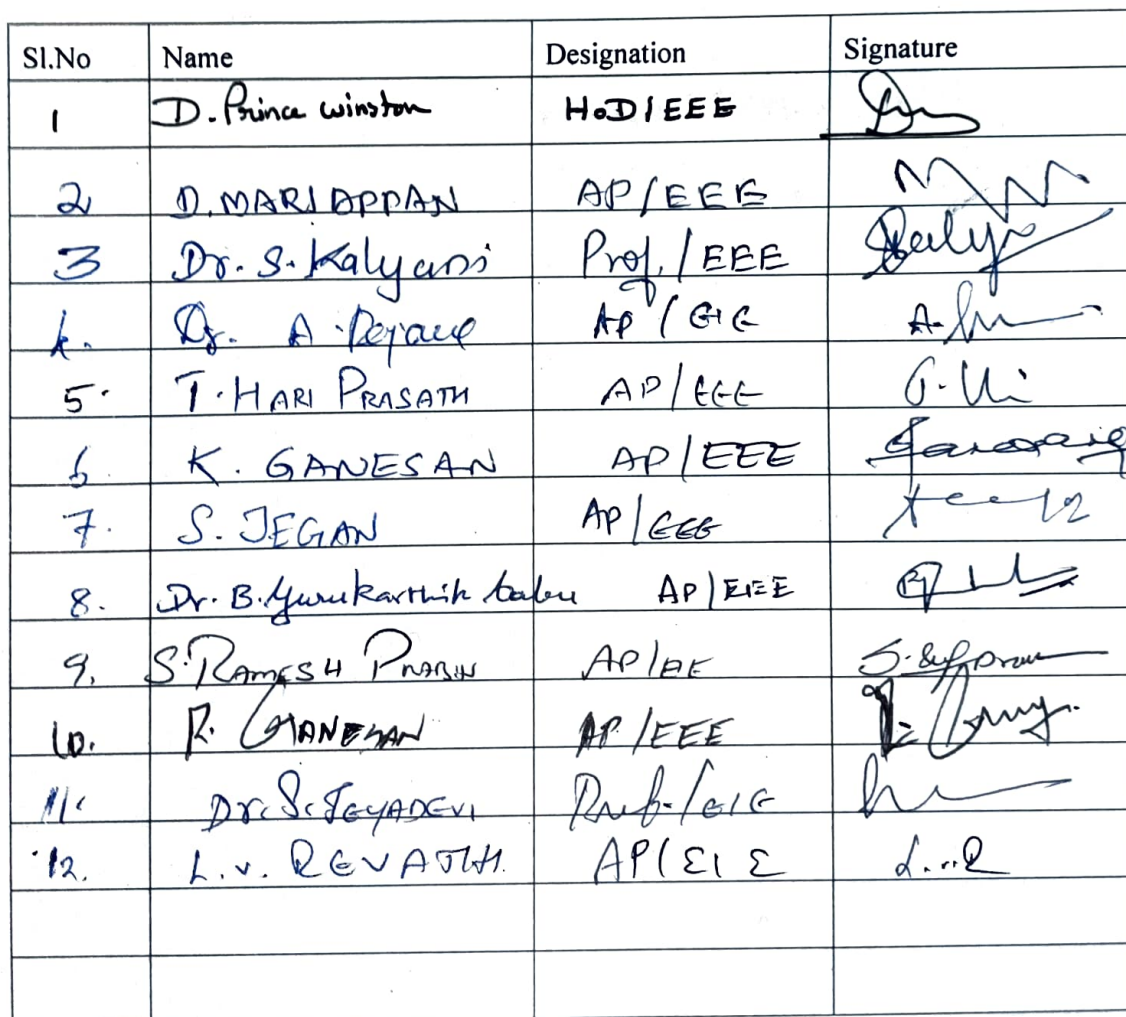 Sl.No Name Designation Signature
1 D. Prince winston HoD/EEE
2 D. MARIAPPAN AP/EEE
3 Dr. S. Kalyani Prof./EEE
4. Dr. A. AP/EIE A.
5. T. HARI PRASATH AP/EEE
6 K. GANESAN AP/EEE
7. S. JEGAN AP/EEE
8. Dr. B. Gurukarthik babu AP/EEE
9. S. RAMESH PRABIN AP/EE
10. R. GANESAN AP/EEE
11. Dr. S. JEYADEVI Prof./EIE
12. L.V. REVATHI. AP/EIE